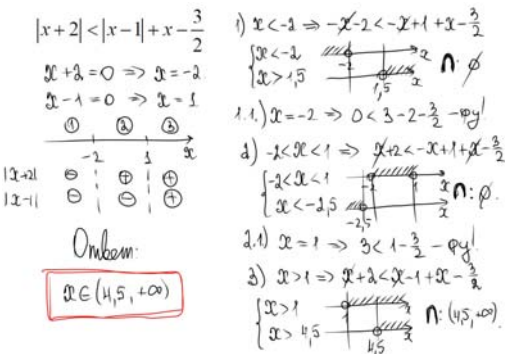 |x+2| < |x-1| + x - 3/2
x+2=0 => x=-2
x-1=0 => x=1
① ② ③
-2 1 x
|x+2| ⊖ ⊕ ⊕
|x-1| ⊖ ⊖ ⊕
Ответ:
x∈(4,5, +∞)
1) x<-2 => -x-2<-x+1+x-3/2
{x<-2
x>1,5
-2 x
1,5 x
∩: ∅
1.1.) x=-2 => 0<3-2-3/2 - фу!
2) -2<x<1 => x+2<-x+1+x-3/2
{-2<x<1
x<-2,5
-2 1 x
-2,5 x
∩: ∅.
2.1) x=1 => 3<1-3/2 - фу!
3) x>1 => x+2<x-1+x-3/2
{x>1
x>4,5
1 x
4,5 x
∩: (4,5, +∞)